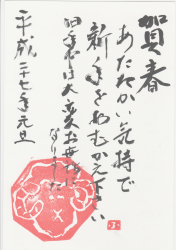 賀春
あたたかい気持で
新年をおむかえ下さい
旧年中は大変お世話に
なりました
平成二十七年元旦